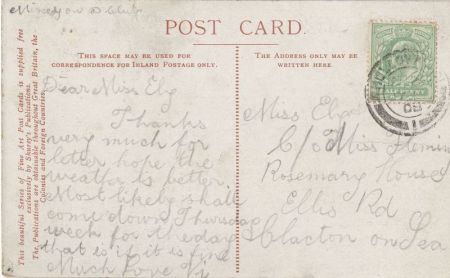 POST CARD.
THIS SPACE MAY BE USED FOR
CORRESPONDENCE FOR INLAND POSTAGE ONLY.
THE ADDRESS ONLY MAY BE
WRITTEN HERE
This beautiful Series of Fine Art Post Cards is supplied free
exclusively by Shurey's Publications.
The Publications are obtainable throughout Great Britain, the
Colonies and Foreign Countries.
Dear Miss Ely
Thanks
very much for
letter hope the
weather is better.
Most likely shall
come down Thursday
week for the day
that is if it is fine
Much Love
Miss Ely
C/o Miss Fleming
Rosemary House
Ellis Rd
Clacton on Sea
HALF PENNY
09